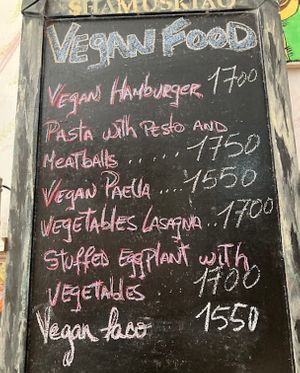 SHAMUSKIAO
VEGAN FOOD
VEGAN HAMBURGER 1700
PASTA with PESTO AND
MEATBALLS ...... 1750
VEGAN PAELLA .... 1550
VEGETABLES LASAGNA .. 1700
STUFFED EGGPLANT with
VEGETABLES 1700
Vegan taco 1550